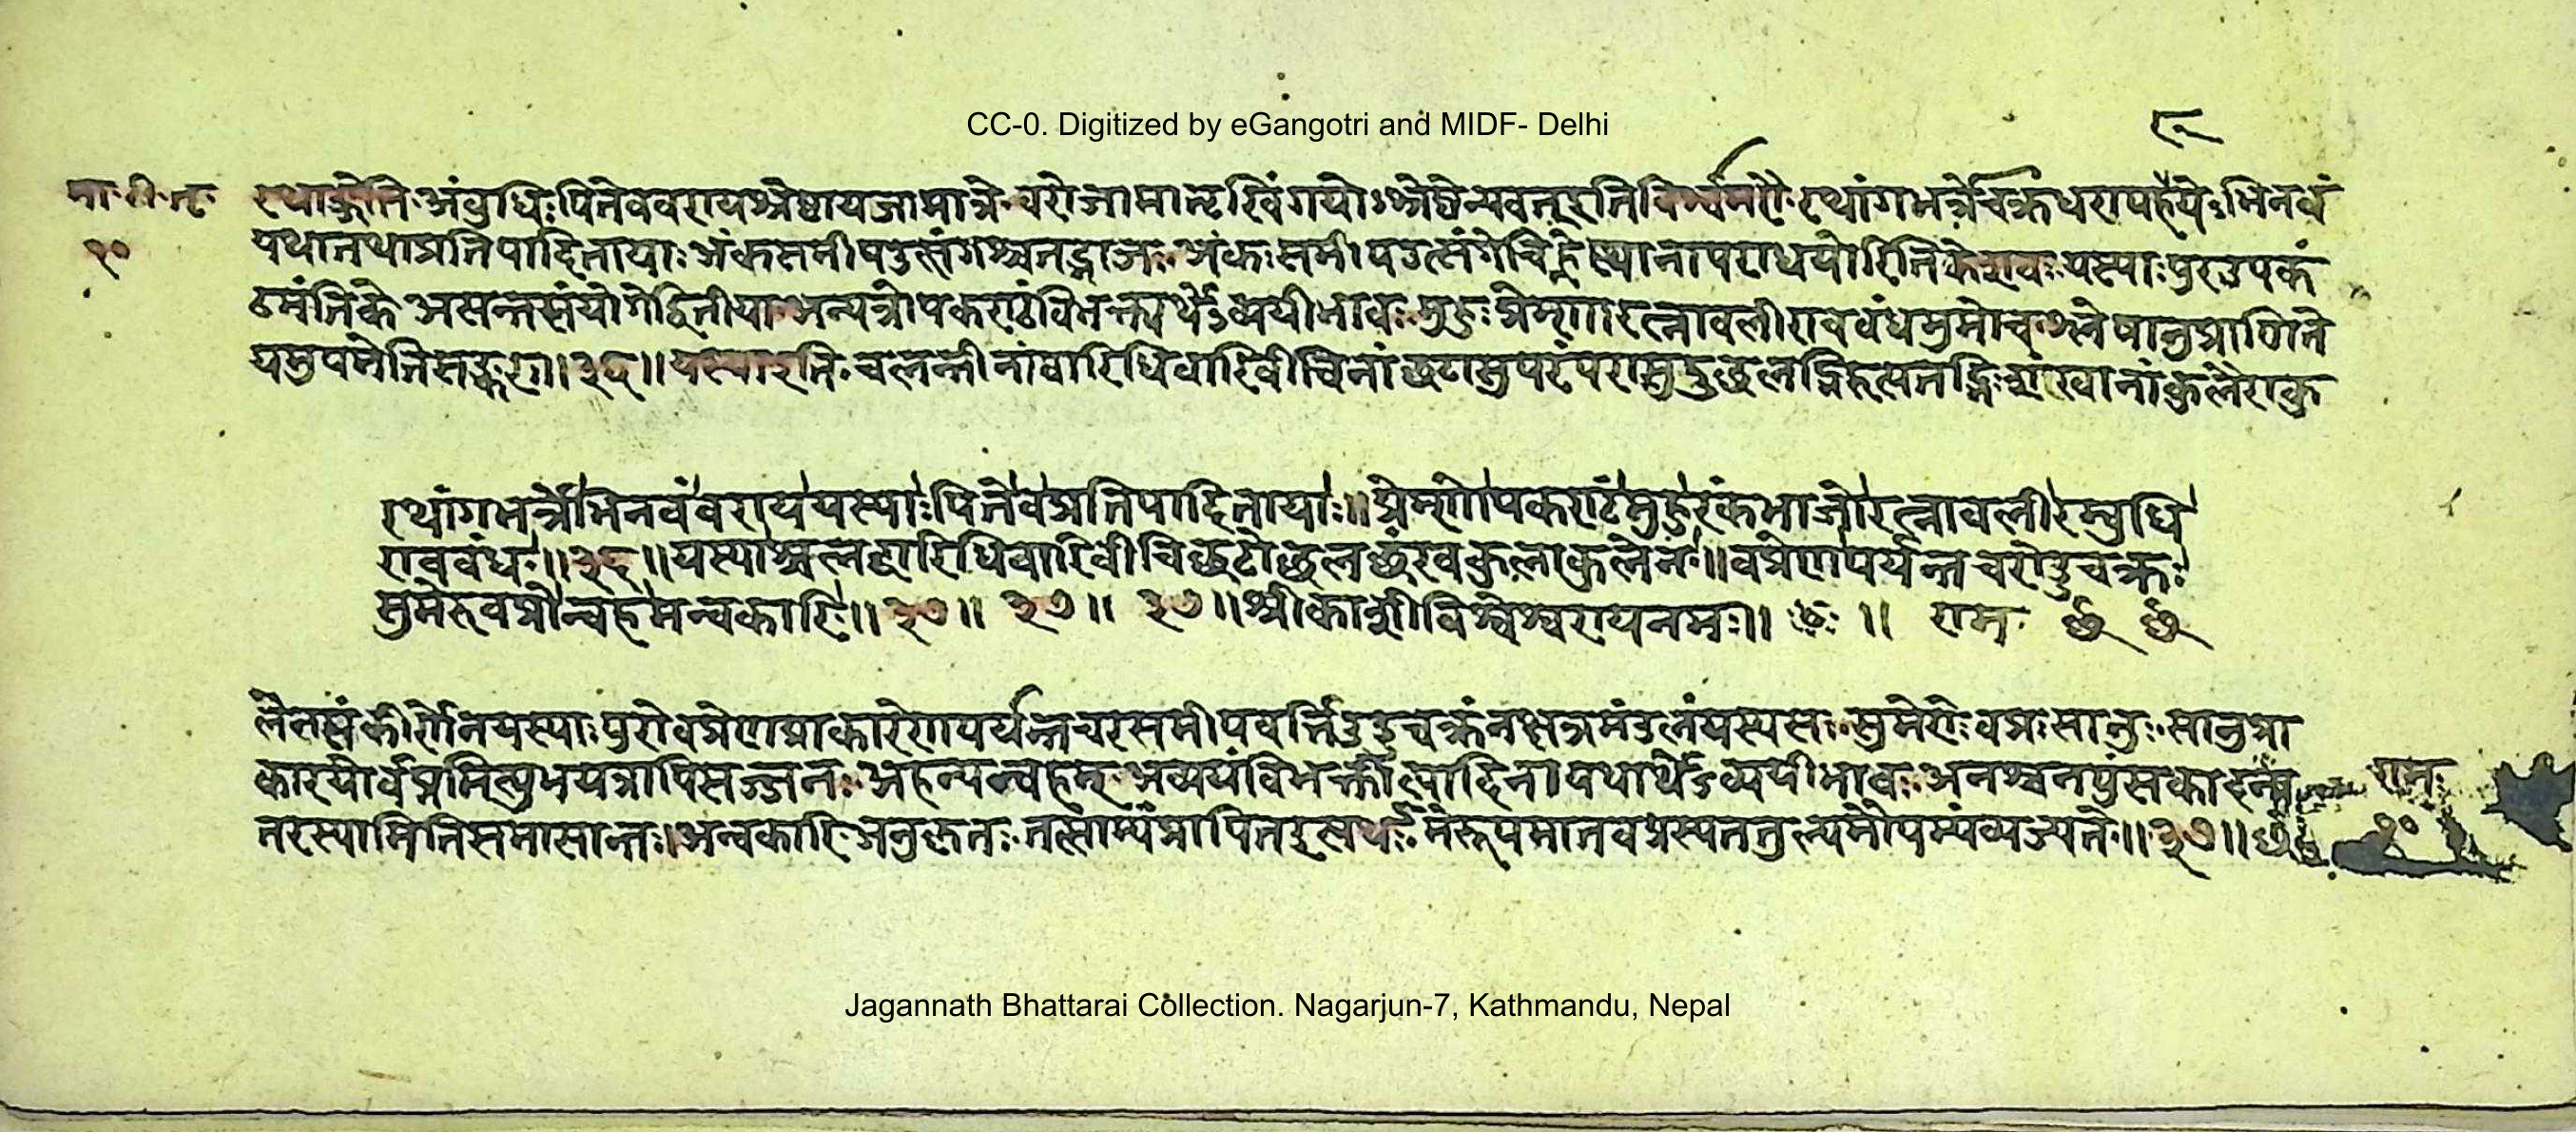 CC-0. Digitized by eGangotri and MIDF- Delhi
रथाङ्गेति अंबुधिः पितेव वराय श्रेष्ठाय जामात्रे वरो जामातरि षिंगयोः श्रेष्ठेन्यवत् इति विश्वः रथांगभर्त्रे चक्रधराय हरये अभिनवं
१०
यथा तथा प्रतिपादितायाः अंकसमीपउत्संगश्च तद्भाजः अंकः समीपउत्संगे चिह्ने स्थानापराधयोरिति केशवः यस्याः पुर उपकं
ठमंतिके अत्सन्तसंयोगे द्वितीया अन्यत्रोपकराठं विभक्त्यर्थेऽव्ययीभावः मुहुः प्रेम्णा रत्नावली राबबंध मुमोच श्लेषानुप्राणिते
यमुपमेति सङ्करः॥३६॥ यस्या इति चलन्तीनां वारिधिवारिवीचिनां छटासु परंपरासु उच्छलद्भिरुत्पतद्भिः शंखानां कुलैराकु
रथांगभर्त्रेभिनवं वराय यस्याः पितेव प्रतिपादितायाः॥ प्रेम्णोपकराठं मुहुरंकभाजो रत्नावलीरम्बुधि
राबबंध॥३६॥ यस्याश्चलद्वारिधिवारिवीचिछटोछलछंखकुलाकुलेन॥ वप्रेण पर्यन्तचरोडुचक्रः
सुमेरुवप्रोन्वहमन्वकारि॥३७॥ ३७॥ ३७॥ श्रीकाशीविश्वेश्वराय नमः॥ छः॥ राम
लेन संकीर्णेन यस्याः पुरो वप्रेण प्राकारेण पर्यन्तचर समीपवर्त्ति उडुचक्रं नक्षत्रमंडलं यस्य सः सुमेरोः वप्रः सानुः सानुप्रा
कारयोर्वप्रमित्युभयत्रापि सज्जनः अहन्यन्वहन् अव्ययं विभक्तीत्यादिना यथार्थेऽव्ययीभावः अनश्च नपुंसकादन्य राम
तरस्यामिति समासान्तः। अन्वकारि अनुकृतः तत्साम्यं प्रापित इत्यर्थः मेरूपमानवप्रस्य तत्तुल्यमौपम्यं व्यज्यते॥३७॥ १०
Jagannath Bhattarai Collection. Nagarjun-7, Kathmandu, Nepal